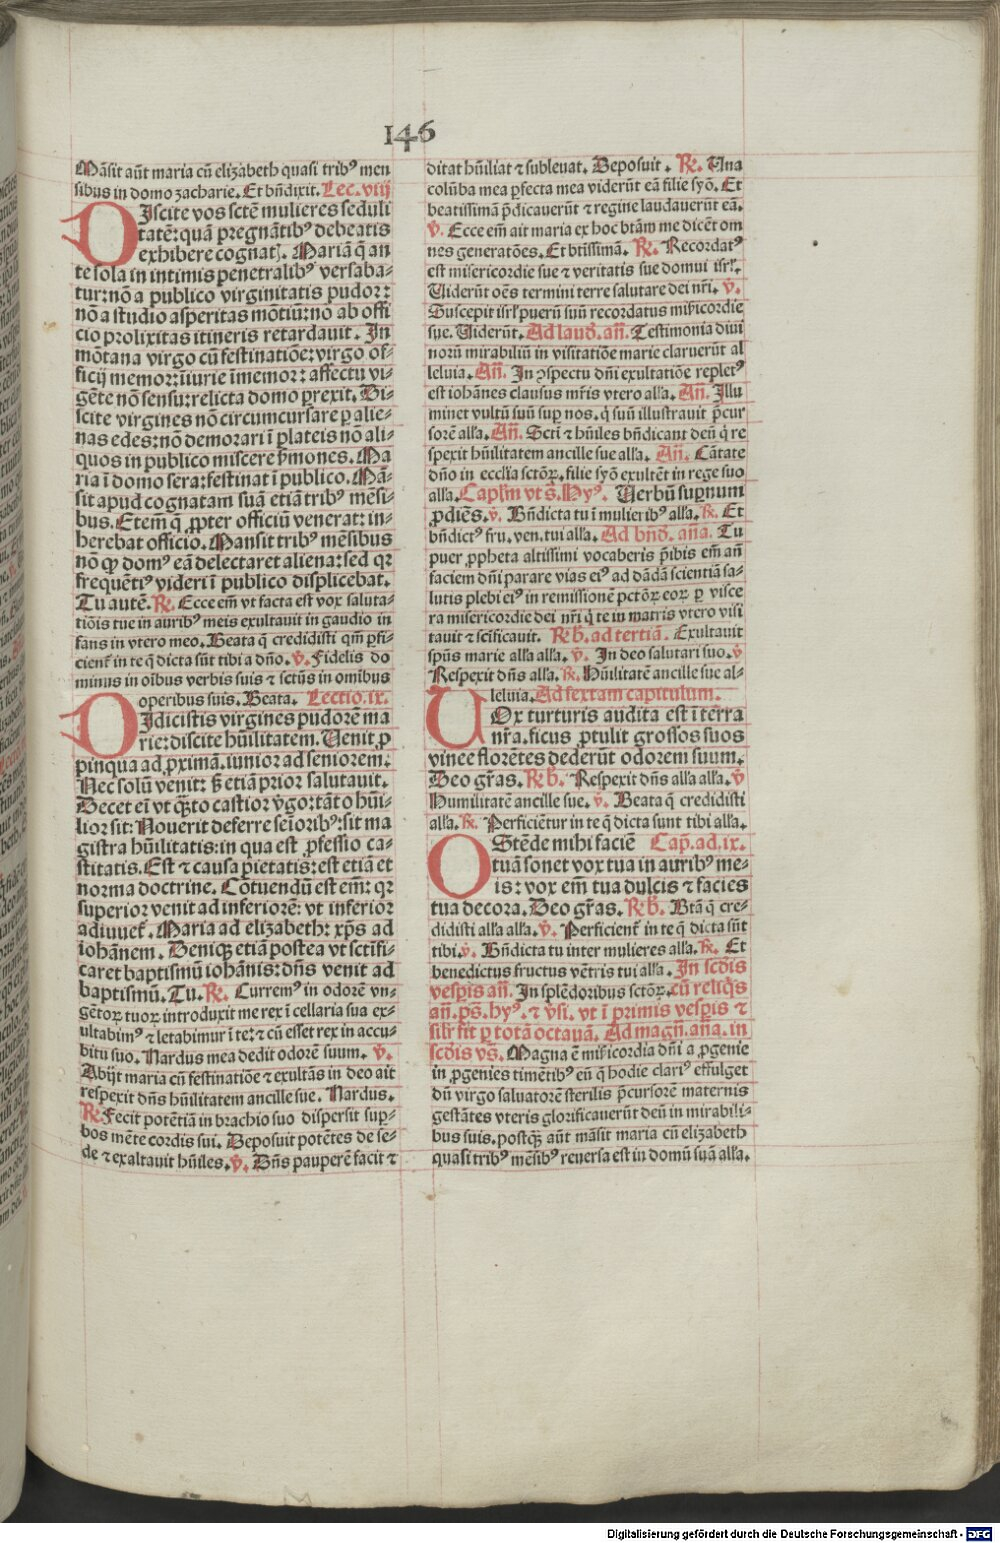 146
Māsit aūt maria cū elizabeth quasi tribꝰ men
sibus in domo zacharie. Et bn̄dixit. Lec. viij
DIscite vos sctē mulieres seduli
tatē: quā pregnātibꝰ debeatis
exhibere cognatꝭ. Mariā q̄ an
te sola in intimis penetralibꝰ versaba-
tur: nō a publico virginitatis pudor:
nō a studio asperitas mōtiū: nō ab offi
cio prolixitas itineris retardauit. In
mōtana virgo cū festinatiōe: virgo of-
ficij memor: iniurie īmemor: affectu vi-
gēte nō sensu: relicta domo prexit. Di-
scite virgines nō circumcursare ꝑ alie-
nas edes: nō demorari ī plateis nō ali-
quos in publico miscere ẜmones. Ma
ria ī domo sera: festinat ī publico. Mā-
sit apud cognatam suā etiā tribꝰ mēsi-
bus. Etem̄ q̄ ꝓpter officiū venerat: in-
herebat officio. Mansit tribꝰ mēsibus
nō ꝙ domꝰ eā delectaret aliena: sed qꝛ
frequētiꝰ videri ī publico displicebat.
Tu autē. ℞. Ecce em̄ vt facta est vox saluta-
tiōis tue in auribꝰ meis exultauit in gaudio in
fans in vtero meo. Beata q̄ credidisti qm̄ ꝑfi-
cient̄ in te q̄ dicta sūt tibi a dn̄o. ℣. Fidelis do
minus in oībus verbis suis ⁊ sctūs in omībus
operibus suis. Beata. Lectio. ix.
DIdicistis virgines pudorē ma
rie: discite hūilitatem. Uenit ꝓ
pinqua ad ꝓximā. iunior ad seniorem.
Nec solū venit: ß etiā prior salutauit.
Decet eī vt q̄to castior v̄go: tāt o hūi-
lior sit: Nouerit deferre seīoribꝰ: sit ma
gistra hūilitatis: in qua est ꝓfessio ca-
stitatis. Est ⁊ causa pietatis: est etiā et
norma doctrine. Cōtuendū est em̄: qꝛ
superior venit ad inferiorē: vt inferior
adiuuet̄. Maria ad elizabeth: xp̄s ad
iohānem. Deniqꝫ etiā postea vt sctīfi-
caret baptismū iohānis: dn̄s venit ad
baptismū. Tu. ℞. Curremꝰ in odorē vn-
gētoꝝ tuoꝝ introduxit me rex ī cellaria sua ex-
ultabimꝰ ⁊ letabimur ī te: ⁊ cū esset rex in accu-
bitu suo. Nardus mea dedit odorē suum. ℣.
Abijt maria cū festinatiōe ⁊ exultās in deo ait
respexit dn̄s hūilitatem ancille sue. Nardus.
℞. Fecit potētiā in brachio suo dispersit suꝑ-
bos mēte cordis sui. Deposuit potētes de se-
de ⁊ exaltauit hūiles. ℣. Dn̄s pauperē facit ⁊
ditat hūiliat ⁊ subleuat. Deposuit. ℞. Una
colūba mea ꝑfecta mea viderūt eā filie syō. Et
beatissimā p̄dicauerūt ⁊ regine laudauerūt eā.
℣. Ecce em̄ ait maria ex hoc btām me dicēt om
nes generatōes. Et btīssimā. ℞. Recordatꝰ
est misericordie sue ⁊ veritatis sue domui isrl̄.
Uiderūt oēs termini terre salutare dei nr̄i. ℣.
Suscepit isrl̄ puerū suū recordatus mīsericordie
sue. Uiderūt. Ad laud̄. an̄. Testimonia diui
norū mirabiliū in visitatiōe marie claruerūt al
leluia. An̄. In ꝯspectu dn̄i exultatiōe repletꝰ
est iohānes clausus mr̄is vtero alła. An̄. Illu
minet vultū suū suꝑ nos. q̄ suū illustrauit p̄cur
sorē alła. An̄. Scti ⁊ hūiles bn̄dicant deū q̄ re
spexit hūilitatem ancille sue alła. An̄. Cātate
dn̄o in ecclīa sctōꝝ. filie syō exultēt in rege suo
alła. Caplm̄ vt s̄. Hyꝰ. Uerbū suꝑnum
ꝓdiēs. ℣. Bn̄dicta tu ī mulieribꝰ alła. ℟. Et
bn̄dictꝰ fru. ven. tui alła. Ad bn̄d. an̄a. Tu
puer ꝓpheta altissimi vocaberis p̄ibis em̄ an̄
faciem dn̄i parare vias eiꝰ ad dādā scientiā sa-
lutis plebi eiꝰ in remissionē pctōꝝ eoꝝ ꝑ visce
ra misericordie dei nr̄i q̄ te in matris vtero visi
tauit ⁊ scīficauit. ℞ b̄. ad tertiā. Exultauit
spūs marie alła alła. ℣. In deo salutari suo. ℣
Respexit dn̄s alła. ℟. Hūilitatē ancille sue al-
leluia. Ad sextam capitulum.
UOx turturis audita est ī terra
nr̄a. ficus ꝓtulit grossos suos
vinee florētes dederūt odorem suum.
Deo gr̄as. ℞ b̄. Respexit dn̄s alła alła. ℣
Humilitatē ancille sue. ℣. Beata q̄ credidisti
alła. ℟. Perficiētur in te q̄ dicta sunt tibi alła.
OStēde mihi faciē Cap̄. ad. ix.
tuā sonet vox tua in auribꝰ me-
is: vox em̄ tua dulcis ⁊ facies
tua decora. Deo gr̄as. ℞ b̄. Btā q̄ cre-
didisti alła alła. ℣. Perficient̄ in te q̄ dicta sūt
tibi. ℣. Bn̄dicta tu inter mulieres alła. ℟. Et
benedictus fructus vētris tui alła. In scd̄is
vesꝑis an̄. In splēdoribus sctōꝝ. cū reliq̄s
an̄. p̄s. hyꝰ. ⁊ v̄si. vt ī primis vesꝑis ⁊
silr̄ fit ꝑ totā octauā. Ad magn̄. an̄a. in
scd̄is vs̄. Magna ē mīsericordia dn̄i a ꝓgenie
in ꝓgenies timētibꝰ eū q̄ hodie clariꝰ effulget
dū virgo saluatorē sterilis p̄cursorē maternis
gestātes vteris glorificauerūt deū in mirabili-
bus suis. postq̄ꝫ aūt māsit maria cū elizabeth
quasi tribꝰ mēsibꝰ reuersa est in domū suā alła.
Digitalisierung gefördert durch die Deutsche Forschungsgemeinschaft - DFG